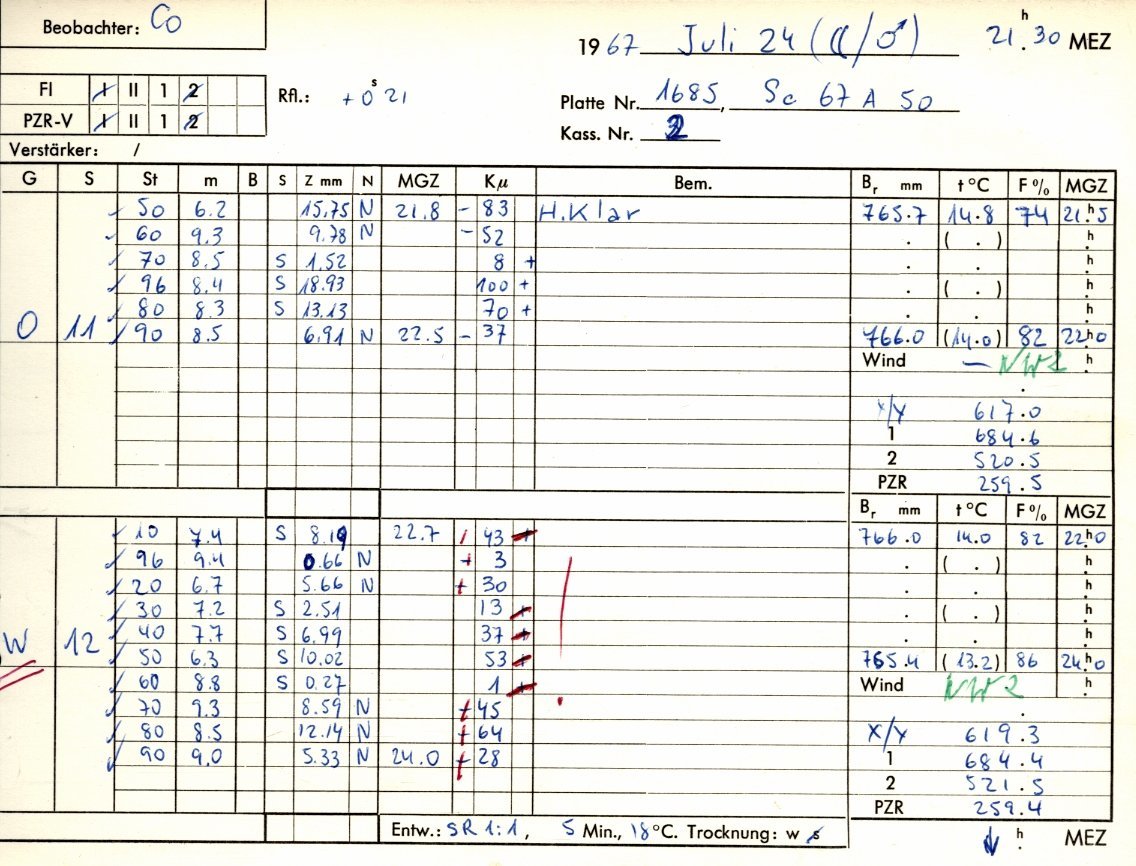 Beobachter: Co
1967 Juli 24 (☾/♂) 21h.30 MEZ
FI I II 1 2
PZR-V I II 1 2
Rfl.: +0s 21
Platte Nr. 1685, Sc 67 A 50
Kass. Nr. 2
Verstärker: /
G S St m B S Z mm N MGZ Kμ Bem. Br mm t°C F% MGZ
50 6.2 15.75 N 21.8 - 83 H.Klar 765.7 14.8 74 21.h5
60 9.3 9.78 N - 52 . ( . ) h.
70 8.5 S 1.52 8 + . . h.
96 8.4 S 18.93 100 + . ( . ) h.
80 8.3 S 13.13 70 + . . h.
O 11 90 8.5 6.91 N 22.5 - 37 766.0 (14.0) 82 22.h0
Wind — NW2 h.
X/Y 617.0
1 684.6
2 520.5
PZR 259.5
Br mm t°C F% MGZ
10 7.4 S 8.19 22.7 43 + 766.0 14.0 82 22.h0
96 9.4 0.66 N + 3 . ( . ) h.
20 6.7 5.66 N + 30 . . h.
30 7.2 S 2.51 13 + . ( . ) h.
W 12 40 7.7 S 6.99 37 + . . h.
50 6.3 S 10.02 53 + 765.4 (13.2) 86 24.h0
60 8.8 S 0.27 1 + Wind NW2 h.
70 9.3 8.59 N + 45
80 8.5 12.14 N + 64 X/Y 619.3
90 9.0 5.33 N 24.0 + 28 1 684.4
2 521.5
PZR 259.4
Entw.: SR 1:1, 5 Min., 18°C. Trocknung: w s h. MEZ